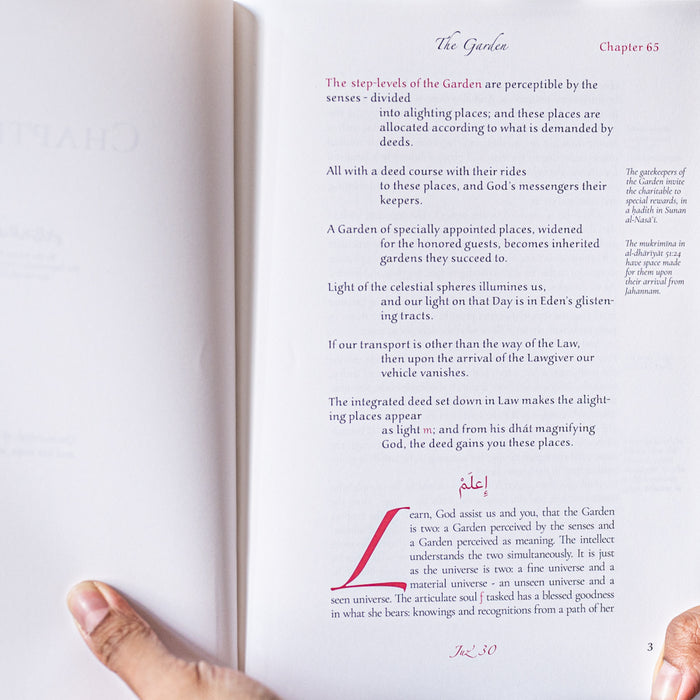 The Garden
Chapter 65
The step-levels of the Garden are perceptible by the
senses - divided
into alighting places; and these places are
allocated according to what is demanded by
deeds.
All with a deed course with their rides
to these places, and God's messengers their
keepers.
The gatekeepers of
the Garden invite
the charitable to
special rewards, in
a hadith in Sunan
al-Nasā'ī.
A Garden of specially appointed places, widened
for the honored guests, becomes inherited
gardens they succeed to.
The mukrimīna in
al-dhāriyāt 51:24
have space made
for them upon
their arrival from
Jahannam.
Light of the celestial spheres illumines us,
and our light on that Day is in Eden's glisten-
ing tracts.
If our transport is other than the way of the Law,
then upon the arrival of the Lawgiver our
vehicle vanishes.
The integrated deed set down in Law makes the alight-
ing places appear
as light m; and from his dhát magnifying
God, the deed gains you these places.
إعلَمْ
Learn, God assist us and you, that the Garden
is two: a Garden perceived by the senses and
a Garden perceived as meaning. The intellect
understands the two simultaneously. It is just
as the universe is two: a fine universe and a
material universe - an unseen universe and a
seen universe. The articulate soul f tasked has a blessed goodness
in what she bears: knowings and recognitions from a path of her
Juz' 30
3